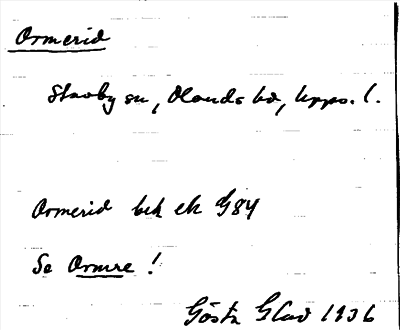 Ormerid
Stavby sn, Olands hd, Upps. l.
Ormerid bek ek G84
Se Ormre !
Gösta Glad 1936